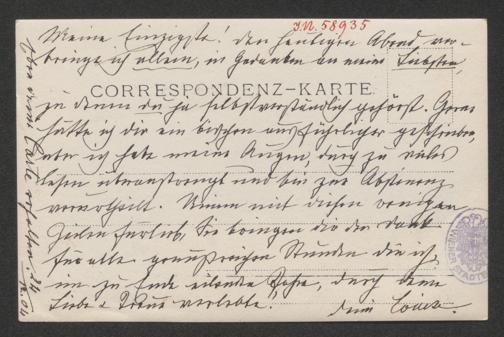 J.N. 58935
Meine Einzigste! Den heutigen Abend ver-
bringe ich allein, in Gedanken an meine Liebsten,
CORRESPONDENZ-KARTE
zu denen du ja selbstverständlich gehörst. Gerne
hätte ich dir ein bischen ausführlicher geschrieben,
aber ich habe meine Augen durch zu vieles
Lesen überanstrengt und bin zur Abstinenz
verurtheilt. Nimm mit diesen wenigen
Zeilen fürlieb, Sie bringen dir den Dank
für alle genußreichen Stunden die ich
im zu Ende eilenden Jahre, durch deine
Liebe & Treue verlebte!
Dein